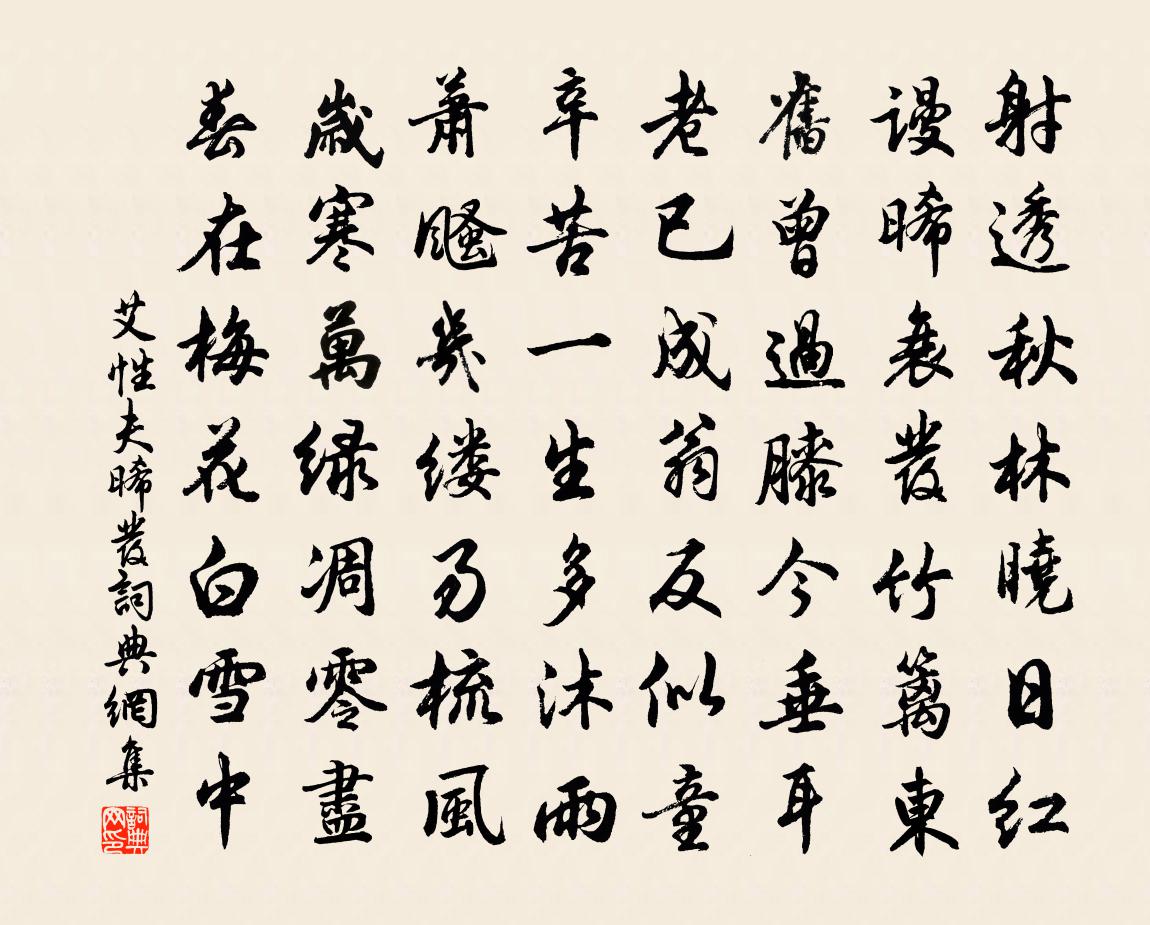 射透秋林曉日紅
謾晞衰發竹籬東
舊曾過膝今垂耳
老已成翁反似童
辛苦一生多沐雨
蕭騷幾縷易梳風
歲寒萬绿凋零盡
春在梅花白雪中
艾性夫晞發詞典網集
詞典網印